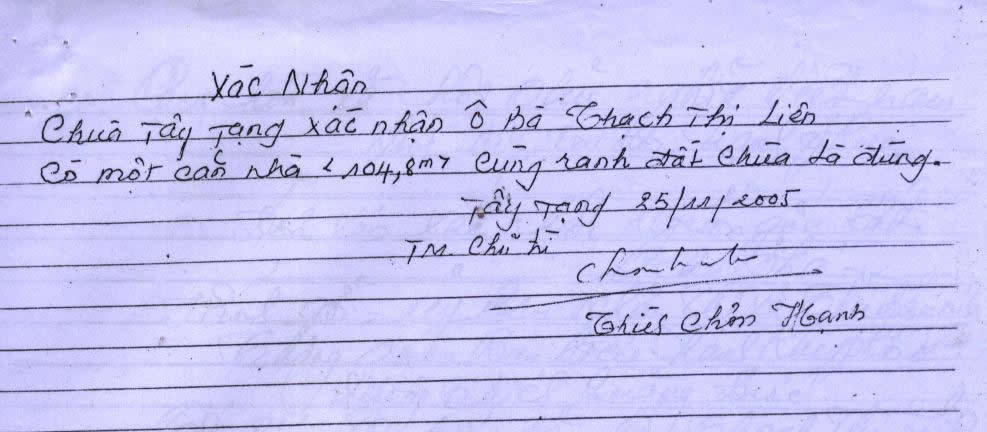 Xác Nhận
Chùa Tây Tạng xác nhận Ô Bà Thạch Thị Liên
Có một căn nhà <104,8m> cùng ranh đất chùa là đúng.
Tây Tạng 25/11/2005
TM. Chủ trì
Thích Chơn Hạnh